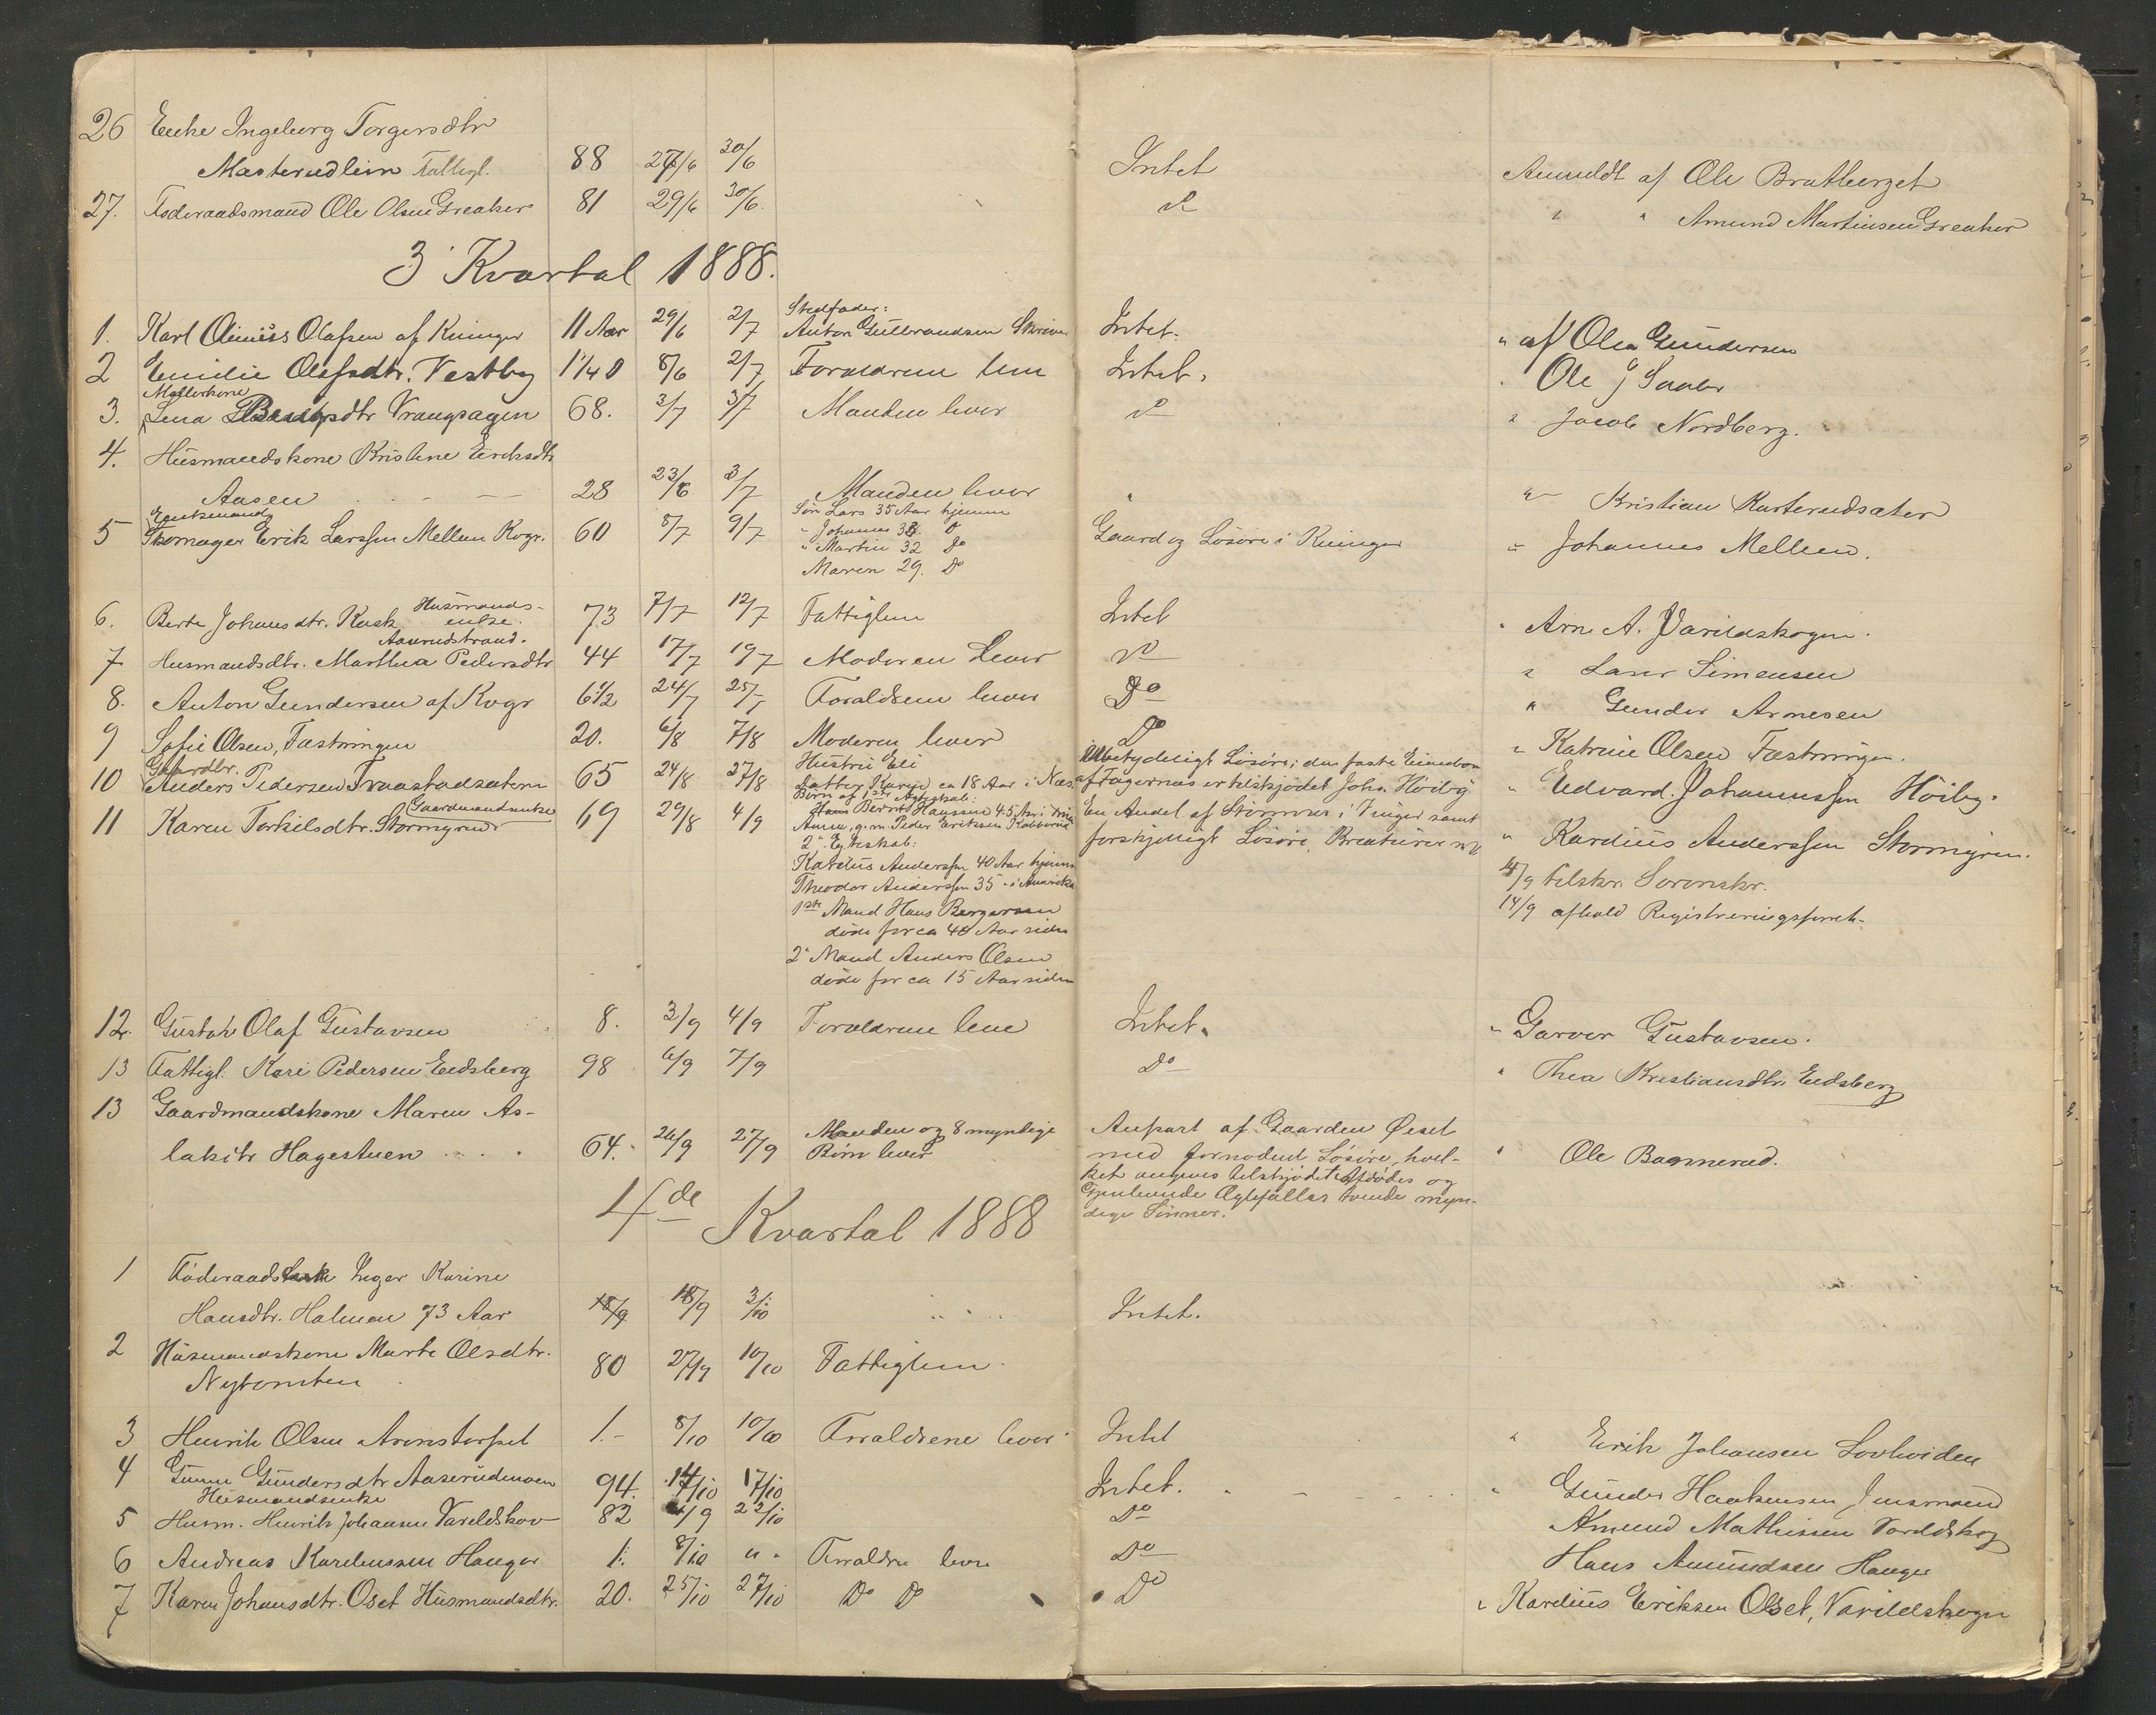 26 Enke Ingeborg Torgersdtr
Masterudlien Fattigl. 88 27/6 30/6 Intet Anmeldt af Ole Bratberget
27. Foderaadsmand Ole Olsen Greaker 81 29/6 30/6. do " " Amund Martinsen Greaker
3' Kvartal 1888.
Stedfader:
1. Karl Olinius Olafsen af Kvinger 11 Aar 29/6 2/7 Anton Gulbrandsen Skriver Intet. " af Olea Gundersen
2 Emilie Olafsdtr. Vestby 8/6 2/7 Forældrene leve Intet. Ole J Saaler
Møllerkone
3. Lena Bengtsdtr Vrangsagen 68. 3/7 3/7 Manden lever do " Jacob Nordberg.
4. Husmandskone Kristine Eriksdtr
Aasen 28 23/6 3/7 Manden lever " " Kristian Kasterudsæter
Søn Lars 35 Aar hjemme
Enkemand
5 Skomager Erik Larssen Mellem Kogr. 60 8/7 9/7 " Johannes 38. Do Gaard og Løsøre i Kvinger " Johannes Mellem.
" Martin 32 Do
Maren 29. Do
Husmands-
6. Berte Johansdtr. Rask enke. 73 7/7 12/7 Fattiglem Intet " Arne A. Varildskogen.
Aanrudstrand.
7 Husmandsdtr. Marthea Pedersdtr 44 17/7 19/7 Moderen Lever do " Lars Simensen
8. Anton Gundersen af Kogr 6 1/2 24/7 25/7 Foraldrene lever Do " Gunder Arnesen
9 Sofie Olsen, Fæstningen 20. 6/8 7/8 Moderen lever Do " Katrine Olsen Fæstningen.
Gaardbr. Hustru Eli Ubetydeligt Løsøre; den faste Eiendom
10 Anders Pedersen Traastadsætern 65 24/8 27/8 Datter Karen ca 18 Aar i Næs. af Fagernæs er tilskjødet Johs. Høiby " Edvard Johannessen Høiby.
Børn af 1ste Ægteskab:
Gaardmandsenke
11 Karen Torkilsdtr. Stormyren 69 29/8 4/9 Hans Berndt Hanssen 45 Aar i En Andel af Stormyr i Vinger samt
Anne, g. m. Peder Eriksen forskjelligt Løsøre, Kreaturer " Kardius Anderssen Stormyren.
2' Ægteskab:
Kardius Anderssen 40 Aar hjemme
Theodor Anderssen 35 " i Amerika 4/9 tilskr. Sorenskr.
1ste Mand Hans Bergersen 14/9 afholdt Registreringsforretn.
døde for ca 40 Aar siden
2' Mand Anders Olsen
døde for ca 15 Aar siden
12. Gustav Olaf Gustavsen 8. 3/9 4/9 Forældrene leve Intet. " Garver Gustavsen.
13 Fattigl. Kari Pedersen Eidsberg 98 6/9 7/9 Do " Thea Kristiansdtr. Eidsberg
13 Gaardmandskone Maren As-
laksdtr Hagestuen 64. 26/9 27/9 Manden og 8 myndige Børn lever Anpart af Gaarden Øiset
med fornødent Løsøre, hvil- " Ole Baanerud.
ket angives tilskjødet Afdødes og
Gjenlevende Ægtefælles tvende myn-
dige Sønner.
4de Kvartal 1888
1 Føderaads Inger Karine
Hansdtr. Holmen 73 Aar 18/9 18/9 3/10 Intet.
2 Husmandskone Marte Olsdtr.
Nytomten 80 27/9 10/10 Fattiglem.
3 Henrik Olsen Aronstorpet 1.- 8/10 10/10 Forældrene lever Intet " Erik Johansen Lovhviden
4 Gunder Gundersdtr Aaserudmoen 94. 14/10 17/10 Intet. " Gunder Haakensen
Husmandsenke
5 Husm. Henrik Johansen Varildskov 82 /9 22/10 Do Amund Mathissen Varildskog
6 Andreas Karelussen Hanger 1. 8/10 " " Forældre leve Do Hans Amundsen Hanger
7 Karen Johansdtr. Oset Husmandsdtr. 20. 25/10 27/10 Do Do Do " Kardius Eriksen Oset, Varildskogen